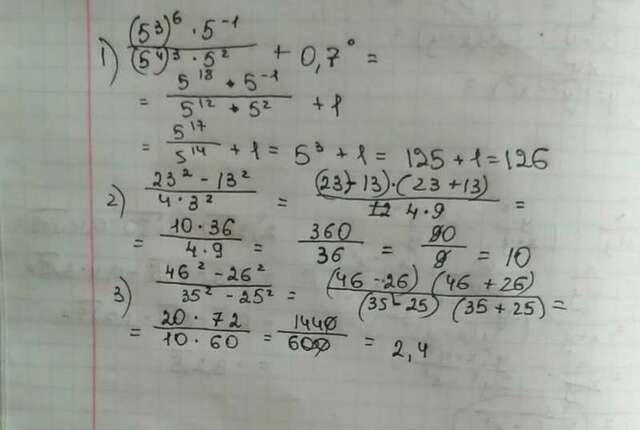 1) ((5³)⁶ · 5⁻¹)/((5⁴)³ · 5²) + 0,7⁰ =
= (5¹⁸ · 5⁻¹)/(5¹² · 5²) + 1
= 5¹⁷/5¹⁴ + 1 = 5³ + 1 = 125 + 1 = 126
2) (23² - 13²)/(4 · 3²) = ((23 - 13) · (23 + 13))/(4 · 9) =
= (10 · 36)/(4 · 9) = 360/36 = 90/9 = 10
3) (46² - 26²)/(35² - 25²) = ((46 - 26) (46 + 26))/((35 - 25) (35 + 25)) =
= (20 · 72)/(10 · 60) = 1440/600 = 2,4